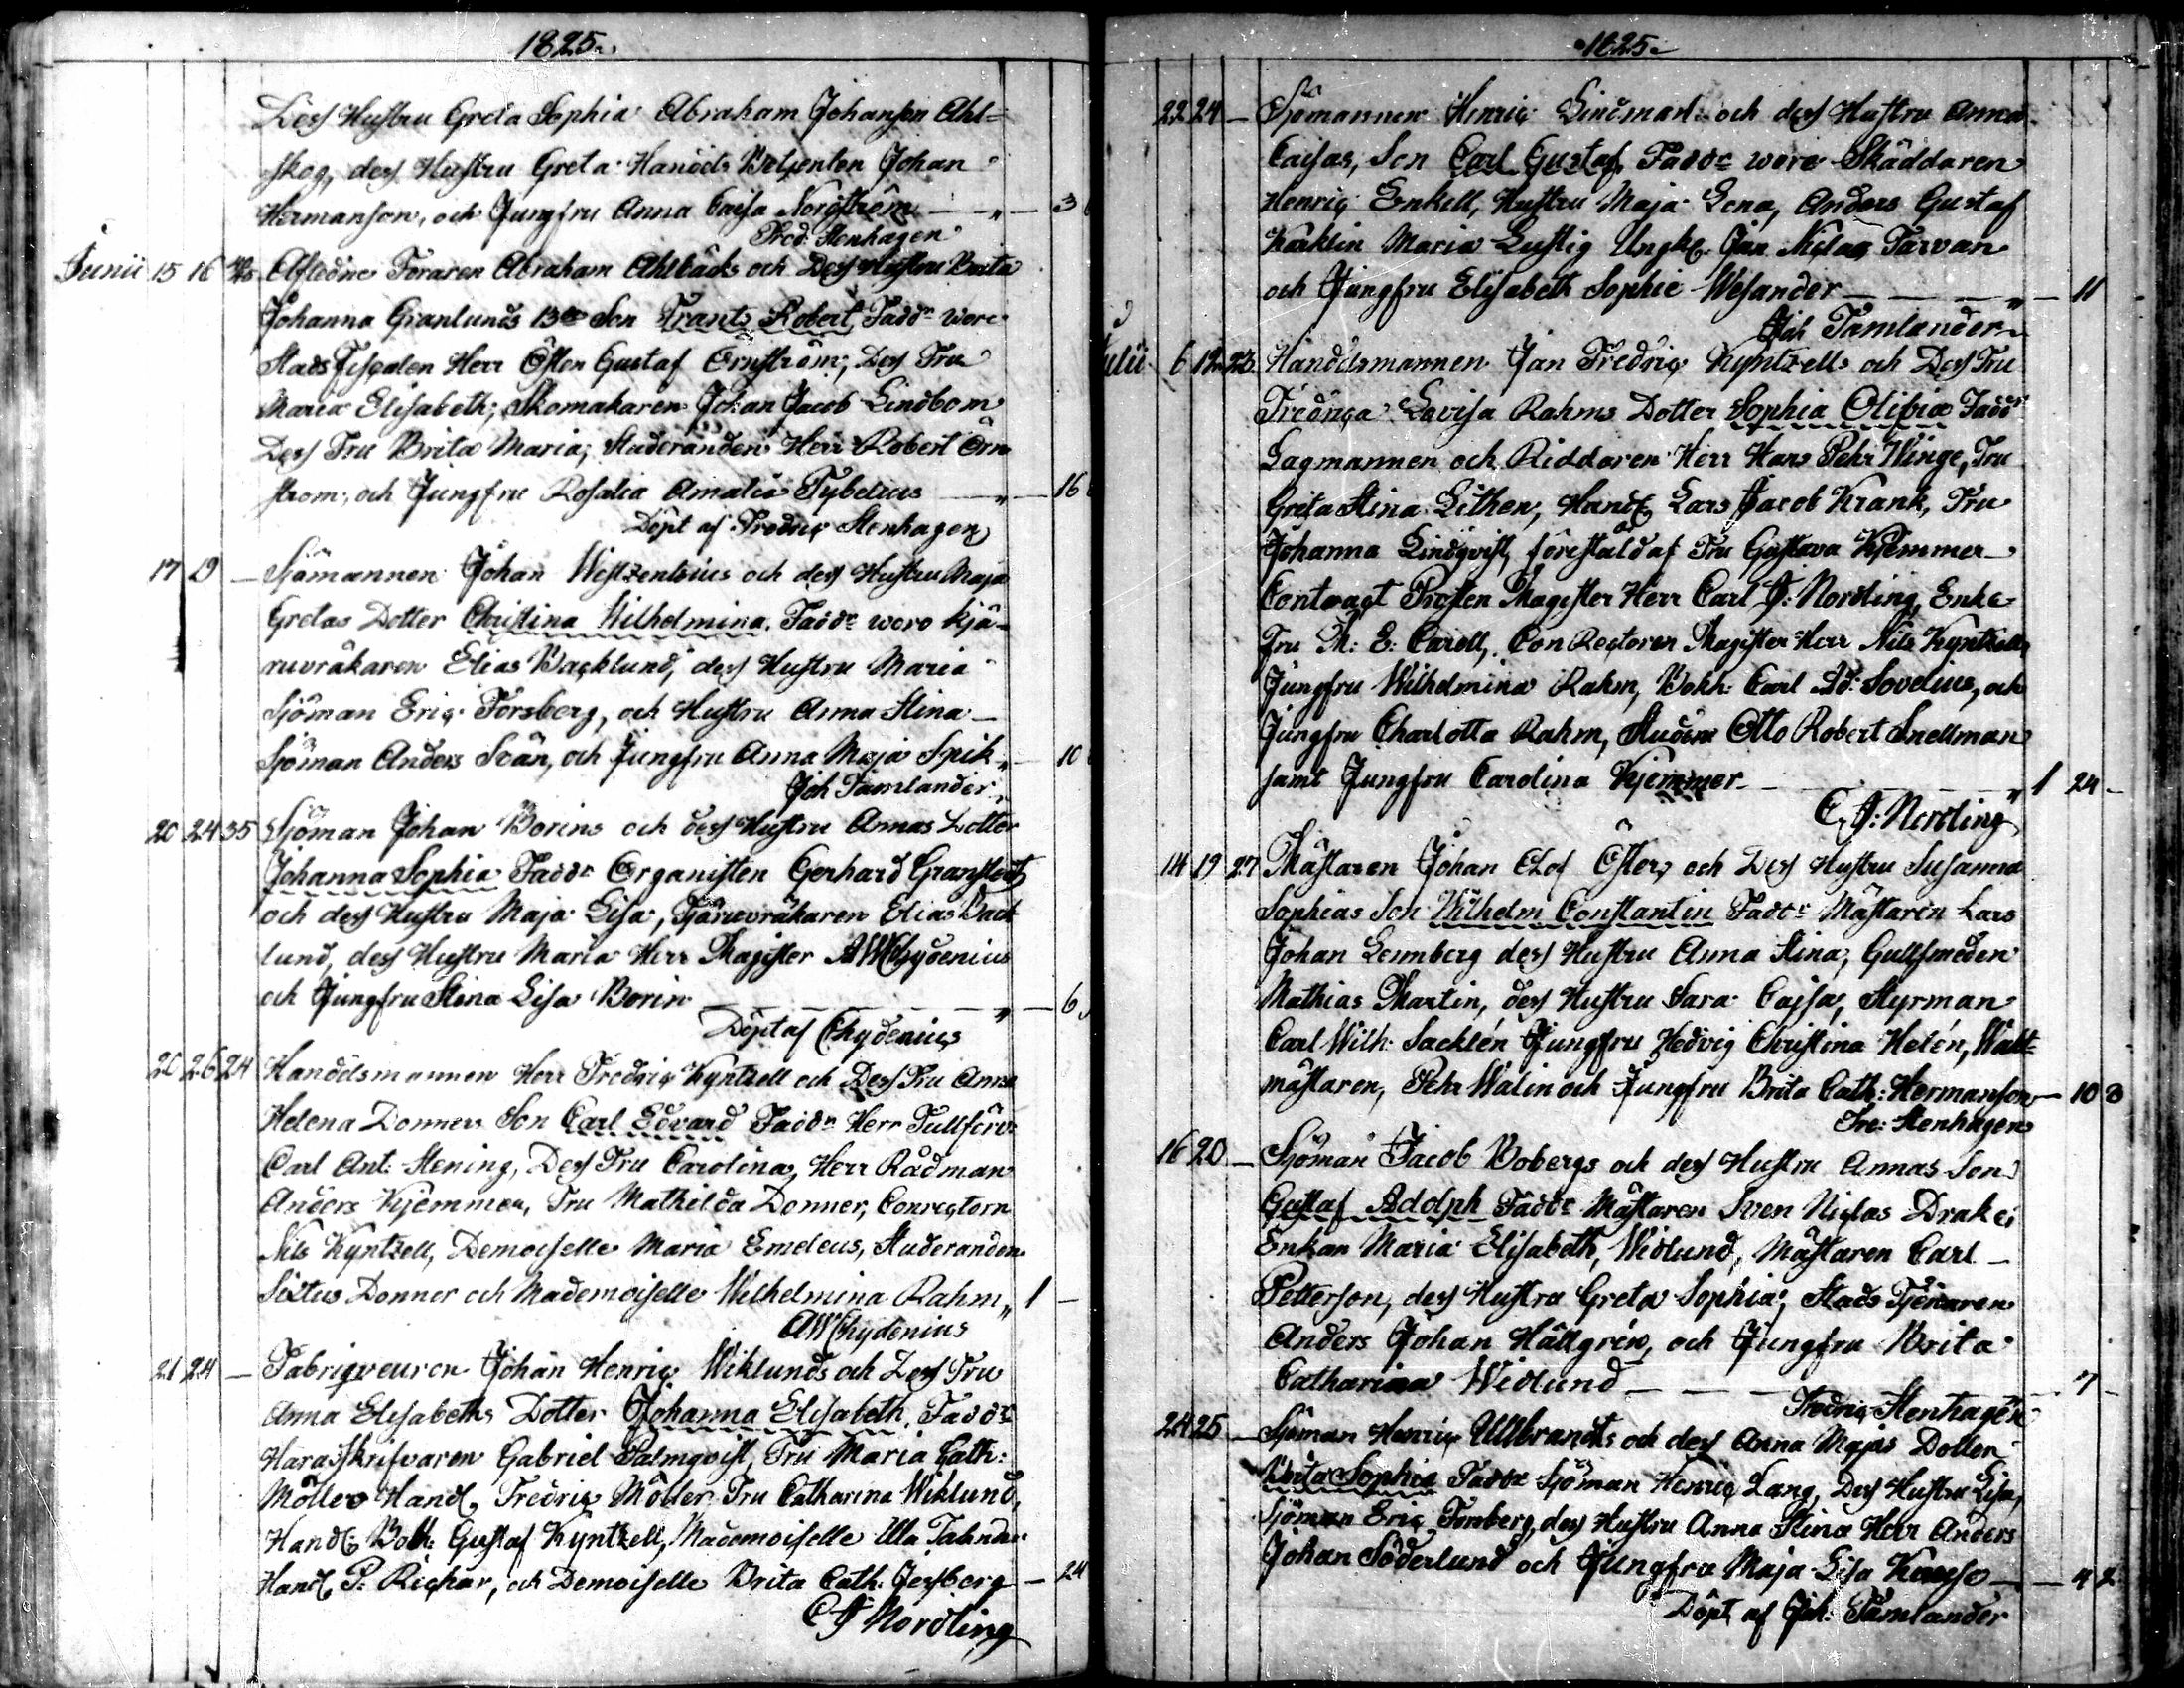 1825.
Dess Hustru Greta Sophia Abraham Johanson Ahl=
skog, dess Hustru Greta Handels Betjenten Johan
Hermanson, och Jungfru Anna Caisa Norström — „ — 3
Fred: Stenhagen
Junii 15 16 Afledne Foraren Abraham Ahlbäcks och Dess Hustru Brita
Johanna Granlunds Son Frantz Robert, Faddr wore
Stads Fiscalen Herr Östen Gustaf Örnström, Dess Fru
Maria Elisabeth; Skomakaren Johan Jacob Lindbom
Dess Fru Brita Maria; Studeranden Herr Robert Örn
strom, och Jungfru Rosalia Amalia Tybelius — „ — 16
Döpt af Fredric Stenhagen
17 19 — Sjömannen Johan Westzentsius och dess Hustru Maja
Gretas Dotter Christina Wilhelmina. Faddr woro kjä-
ruvräkaren Elias Backlund, dess Hustru Maria
Sjöman Eric Forsberg, och Hustru Anna Stina —
Sjöman Anders Svan, och Jungfru Anna Maja Spik „ — 10
Joh Tamlander
20 24 35 Sjöman Johan Borins och dess Hustru Annas Dotter
Johanna Sophia Faddr Organisten Gerhard Granstedt
och dess Hustru Maja Lisa, Tjäruvräkaren Elias Back
lund, dess Hustru Maria Herr Magister AWChydenius
och Jungfru Stina Lisa Borin — „ — 6
Döpt af Chydenius
20 26 24 Handelsmannen Herr Fredric Kyntzell och Dess Fru Anna
Helena Donners Son Carl Edvard Faddr Herr Tullförv:
Carl Ant: Stening, Dess Fru Carolina, Herr Rådman
Anders Kjemmer, Fru Mathilda Donner, Conrectorn
Nils Kyntzell, Demoiselle Maria Emeleus, Studeranden
Sixtus Donner och Mademoiselle Wilhelmina Rahm „ 1 —
AWChydenius
21 24 — Fabriqveuren Johan Henric Wiklunds och Dess Fru
Anna Elisabeths Dotter Johanna Elisabeth, Faddr
Haradsskrifvaren Gabriel Palmqvist, Fru Maria Cath:
Möller Handl. Fredric Möller Fru Catharina Wiklund,
Handl. Bokh: Gustaf Kyntzell, Mademoiselle Ulla
Handl. P. Richar, och Demoiselle Brita Cath: Jesberg — 24
C J Nordling
1825
22 24 — Sjömannen Henric Lindman och dess Hustru Anna
Caisas, Son Carl Gustaf Faddr wore Skäddaren
Henric Enkell, Hustru Maja Lena, Anders Gustaf
Käcklin Maria Lustig Ungk. Jan Niclas Tarvan
och Jungfru Elisabeth Sophie Wesander — „ — 11
Joh Tamlander
Julii 6 12 23 Handelsmannen Jan Fredric Kyntzells och Dess Fru
Fredrica Lovisa Rahms Dotter Sophia Olivia Faddr
Lagmannen och Riddaren Herr Hans Pehr Winge, Fru
Greta Stina Lithen, Handl. Lars Jacob Krank, Fru
Johanna Lindqvist, föreståld af Fru Gustava Kjemmer
Contract Prosten Magister Herr Carl J: Nordling, Enke
Fru M: E: Carell, Con Rectoren Magister Herr Nils Kyntzell,
Jungfru Wilhelmina Rahm, Bokh: Carl Ad: Sovelius, och
Jungfru Charlotta Rahm, Studer: Otto Robert Snellman
samt Jungfru Carolina Kjemmer — „ 1 24 —
C, J: Nordling
14 19 27 Mästaren Johan Elof Öster, och Dess Hustru Susanna
Sophias Son Wilhelm Constantin Faddr Mästaren Lars
Johan Lennberg dess Hustru Anna Stina, Gullsmeden
Mathias Martin, dess Hustru Sara Cajsa, Styrman
Carl Wilh: Sacklén Jungfru Hedvig Christina Helén, Wakt=
mästaren, Pehr Walin och Jungfru Brita Cath: Hermanson — 10 8
Fre: Stenhagen
16 20 — Sjöman Jacob Bobergs och dess Hustru Annas Son
Gustaf Adolph Faddr Mästaren Sven Niclas Drake,
Enkan Maria Elisabeth, Widlund, Mästaren Carl —
Petterson, dess Hustru Greta Sophia, Stads Tjenaren
Anders Johan Hällgrén, och Jungfru Brita
Catharina Widlund — — — 7 —
Fredric Stenhagen
24 25 — Sjöman Henric Ullbrandts och dess Anna Majas Dotter
Brita Sophia Faddr Sjöman Henric Lang, Dess Hustru Lisa,
Sjöman Eric Forsberg, dess Hustru Anna Stina Herr Anders
Johan Söderlund och Jungfru Maja Lisa — — 4 2
Döpt af Joh: Tamlander